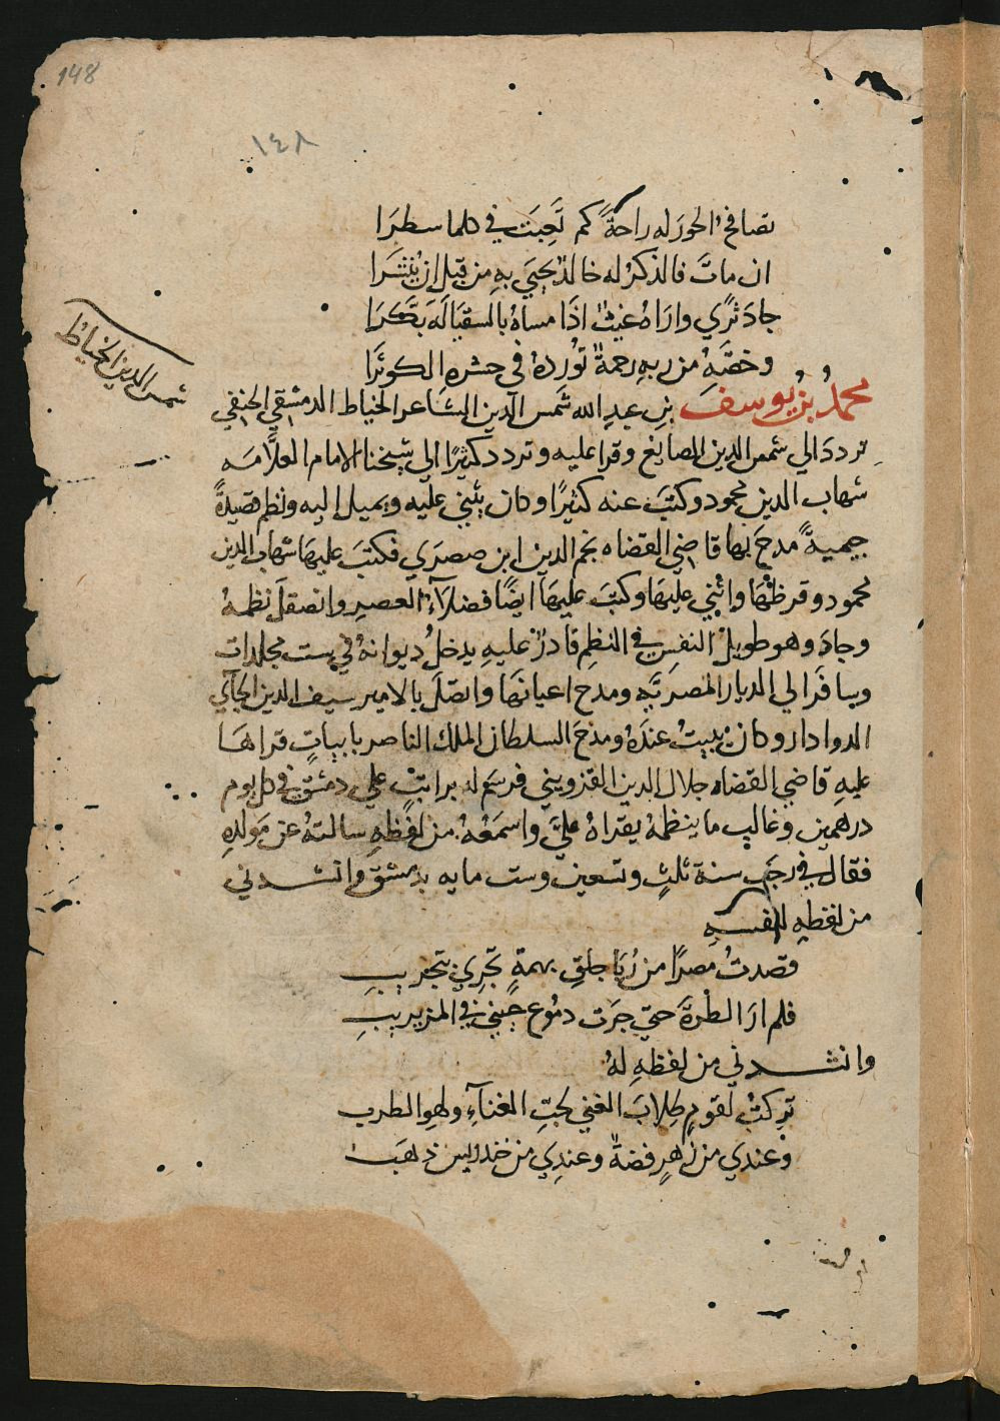 148
١٤٨
تصافح الحورَ له راحةٌ كم تَعِبَت في كلما سطرَا
ان ماتَ فالذكرُ له خالدٌ يحيَي بهِ من قبل ان يُنشَرا
جادَ ثرًي واراهُ غيثٌ اذَا مساهُ بالسقيَا لَهَ بَكَّرَا
وخصَّهُ من ربهِ رحمةٌ تُوردهُ في حشرهِ الكوثرَا
شمس الدين الخياط
محمدُ بنُ يوسف بنِ عبدِ الله شمس الدين الشاعر الخياط الدمشقي الحنفي
تردَدَ الي شمس الدين الصايغ وقرا عليه وتردد كثيرًا الي شيخنا الامام العلَّامَه
شهاب الدين محمود وكتبَ عنه كثيرًا وكان يثني عليه ويميل اليه ونظم قصيدةً
جيميةً مدحَ بها قاضي القضاه نجم الدين ابن صصرَي فكتبَ عليهَا شهاب الدين
محمود وقرظهَا واثني عليهَا وكتبَ عليهَا ايضًا فضلآءُ العصرِ وانصقلَ نظمهُ
وجادَ وهو طويلُ النفسِ في النظمِ قادرٌ عليهِ يدخلُ ديوانهُ في ست مجلدات
وسافرَ الي الديار المصرَيَّه ومدح اعيانهَا واتصَلَ بالامير سيف الدين الجآي
الدوادار وكان يبيتُ عندَهُ ومدَحَ السلطان الملك الناصر بابياتٍ قراهَا
عليهِ قاضي القضاه جلال الدين القزويني فرسَم له براتبٍ علي دمشق في كل يوم
درهمين وغالب ما ينظمهُ يقراهُ عليَّ واسمَعُهُ من لفظهِ سالتهُ عن مَولدِهِ
فقال في رجَب سنة ثلثٍ وتسعين وست مايه بدمشق وانشدني
من لفظهِ لنفسهِ
قصدتُ مصرًا من رُبَا جلقٍ بهمةٍ تجَرِي بتجريبِي
فلم ارَ الطُرةَ حتي جرَت دمُوع عيني في المزيريبِ
وانشدني من لفظهِ لهُ
تركتُ لقومٍ طِلابَ الغني لحبِّ الغنآءِ ولهوِ الطرب
وعندي من زهرٍ فضةٌ وعندِي من خندريسٍ ذهَب